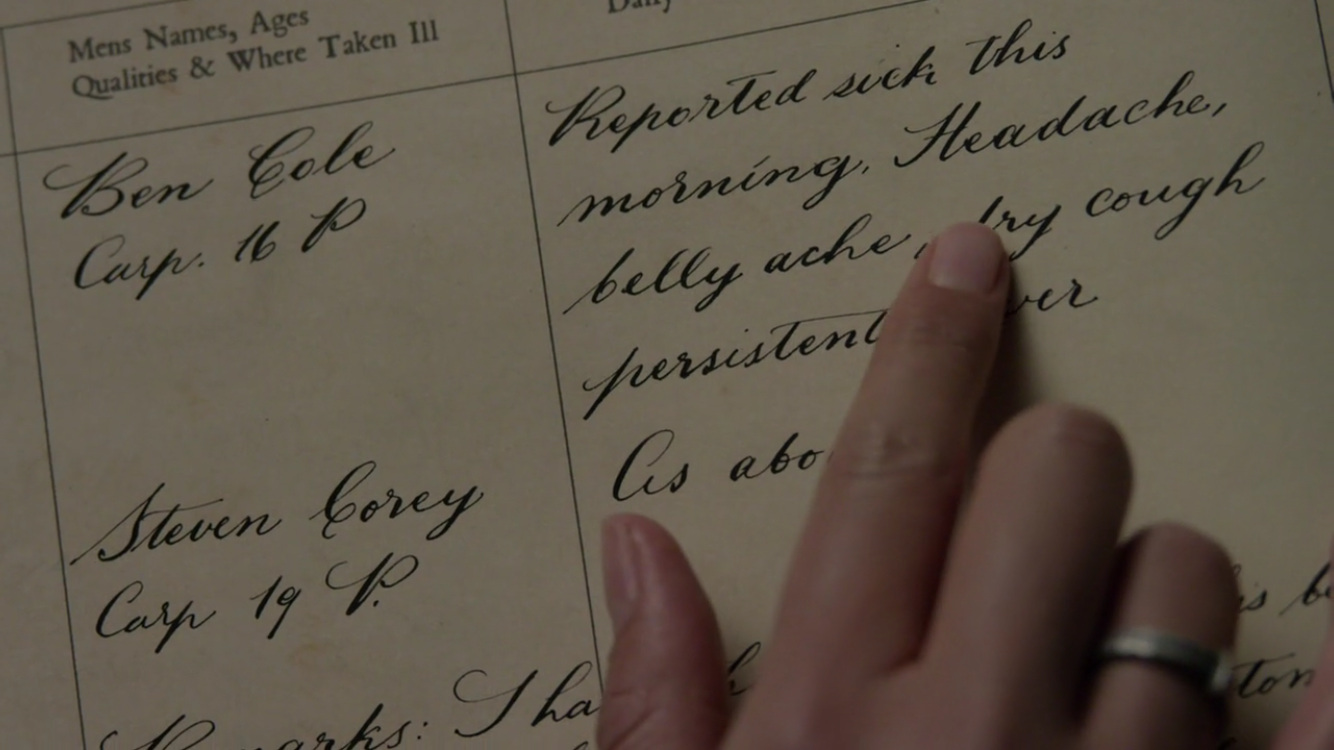 Mens Names, Ages
Qualities & Where Taken Ill
Daily
Ben Cole
Carp. 16 P
Reported sick this
morning. Headache,
belly ache, dry cough
persistent
Steven Corey
Carp 19 P.
As
Remarks: I